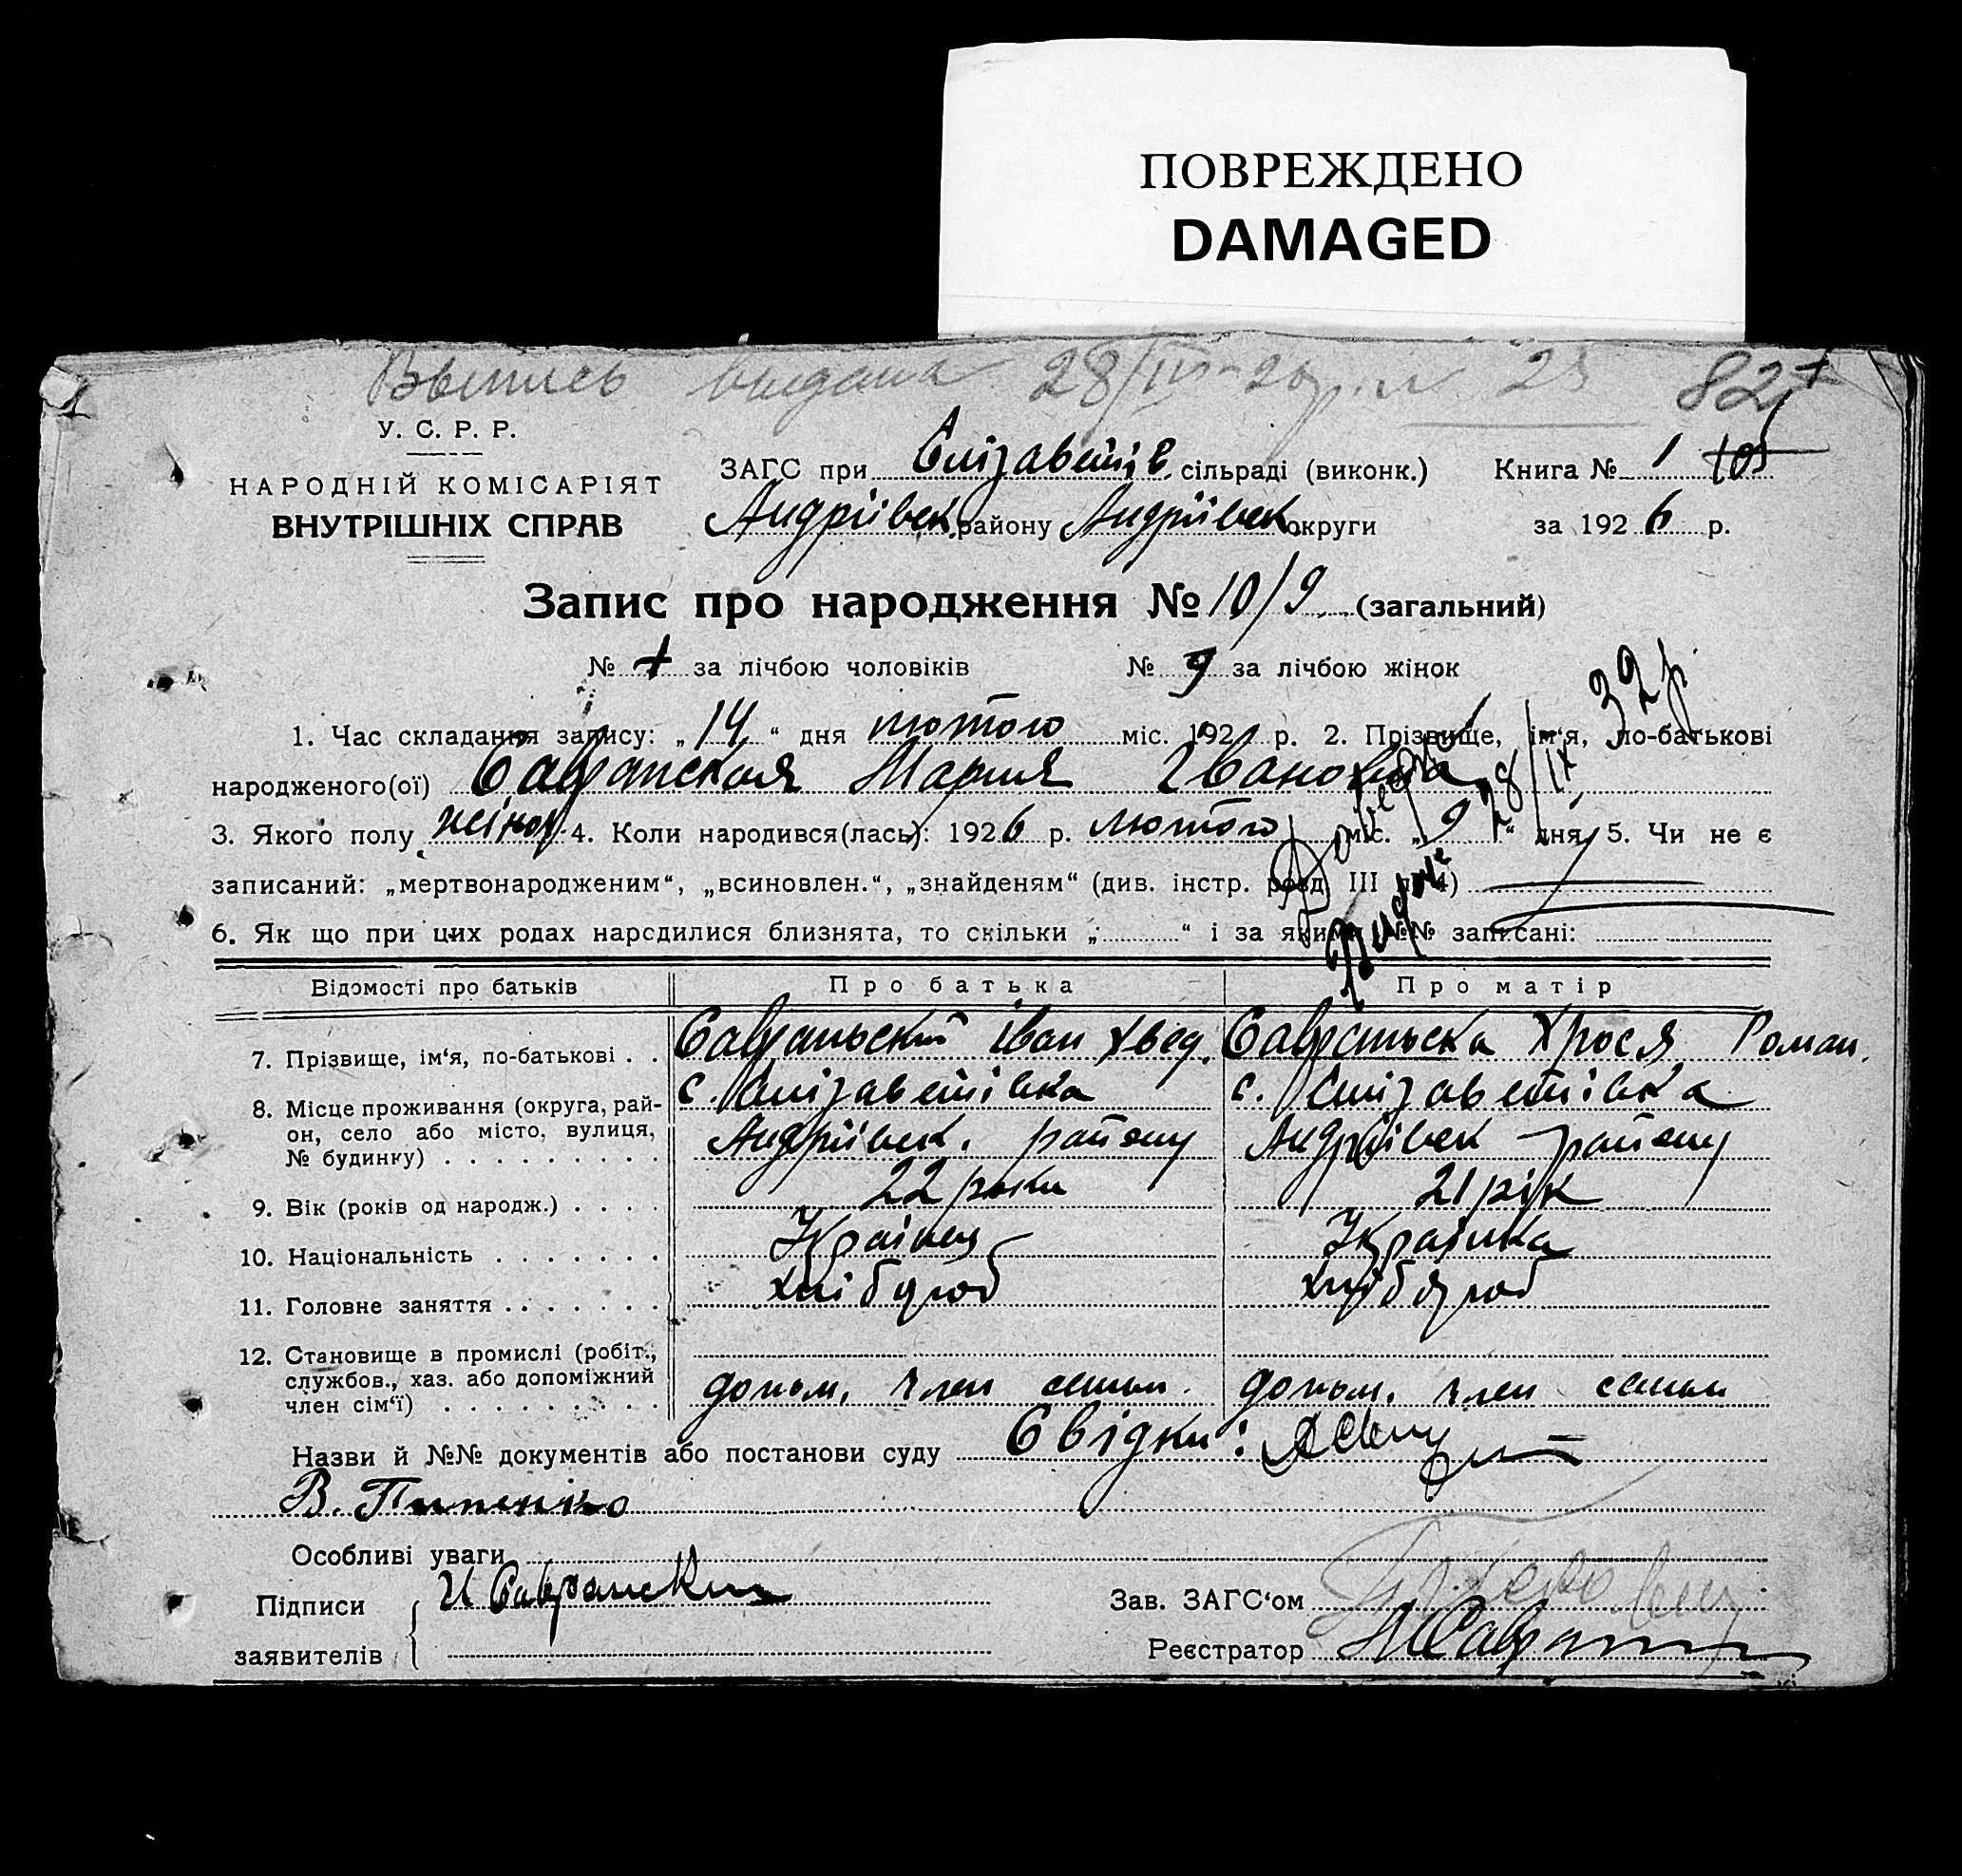 ПОВРЕЖДЕНО
DAMAGED
Выпись выдана 28/III-26 р. № 25 82
У. С. Р. Р.
НАРОДНІЙ КОМІСАРІЯТ
ВНУТРІШНІХ СПРАВ
ЗАГС при Єлізаветів. сільраді (виконк.) Книга № 1 105
Андріївск. району Андріївск округи за 1926 р.
Запис про народження № 10/9 (загальний)
№ + за лічбою чоловіків № 9 за лічбою жінок
1. Час складання запису: „14“ дня лютого міс. 192 р. 2. Прізвище, ім‘я, по-батькові
народженого(ої) Савранская Мария Ивановна
3. Якого полу жіноч. 4. Коли народився(лась): 1926 р. лютого міс. „9“ дня, 5. Чи не є
записаний: „мертвонародженим“, „всиновлен.“, „знайденям“ (див. інстр. розд. III п. 4)
6. Як що при цих родах народилися близнята, то скільки „ “ і за якими №№ записані:
28/IX 32 р.
Відомості про батьків Про батька Про матір
7. Прізвище, ім‘я, по-батькові . . Савраньский Іван Хвед. Савраньска Хрося Роман.
8. Місце проживання (округа, рай- с. Єлізаветівка с. Єлізаветівка
он, село або місто, вулиця, Андріївск. району Андріївск району
№ будинку)
9. Вік (років од народж.) 22 роки 21 рік
10. Національність Українец Українка
11. Головне заняття хлібороб хлібороб
12. Становище в промислі (робіт.,
службов., хаз. або допоміжний допом. член семьи. допом. член семьи
член сім‘ї)
Назви й №№ документів або постанови суду Свідки:
В. Пипенко
Особливі уваги
Підписи И Савранский Зав. ЗАГС‘ом
заявителів Реєстратор